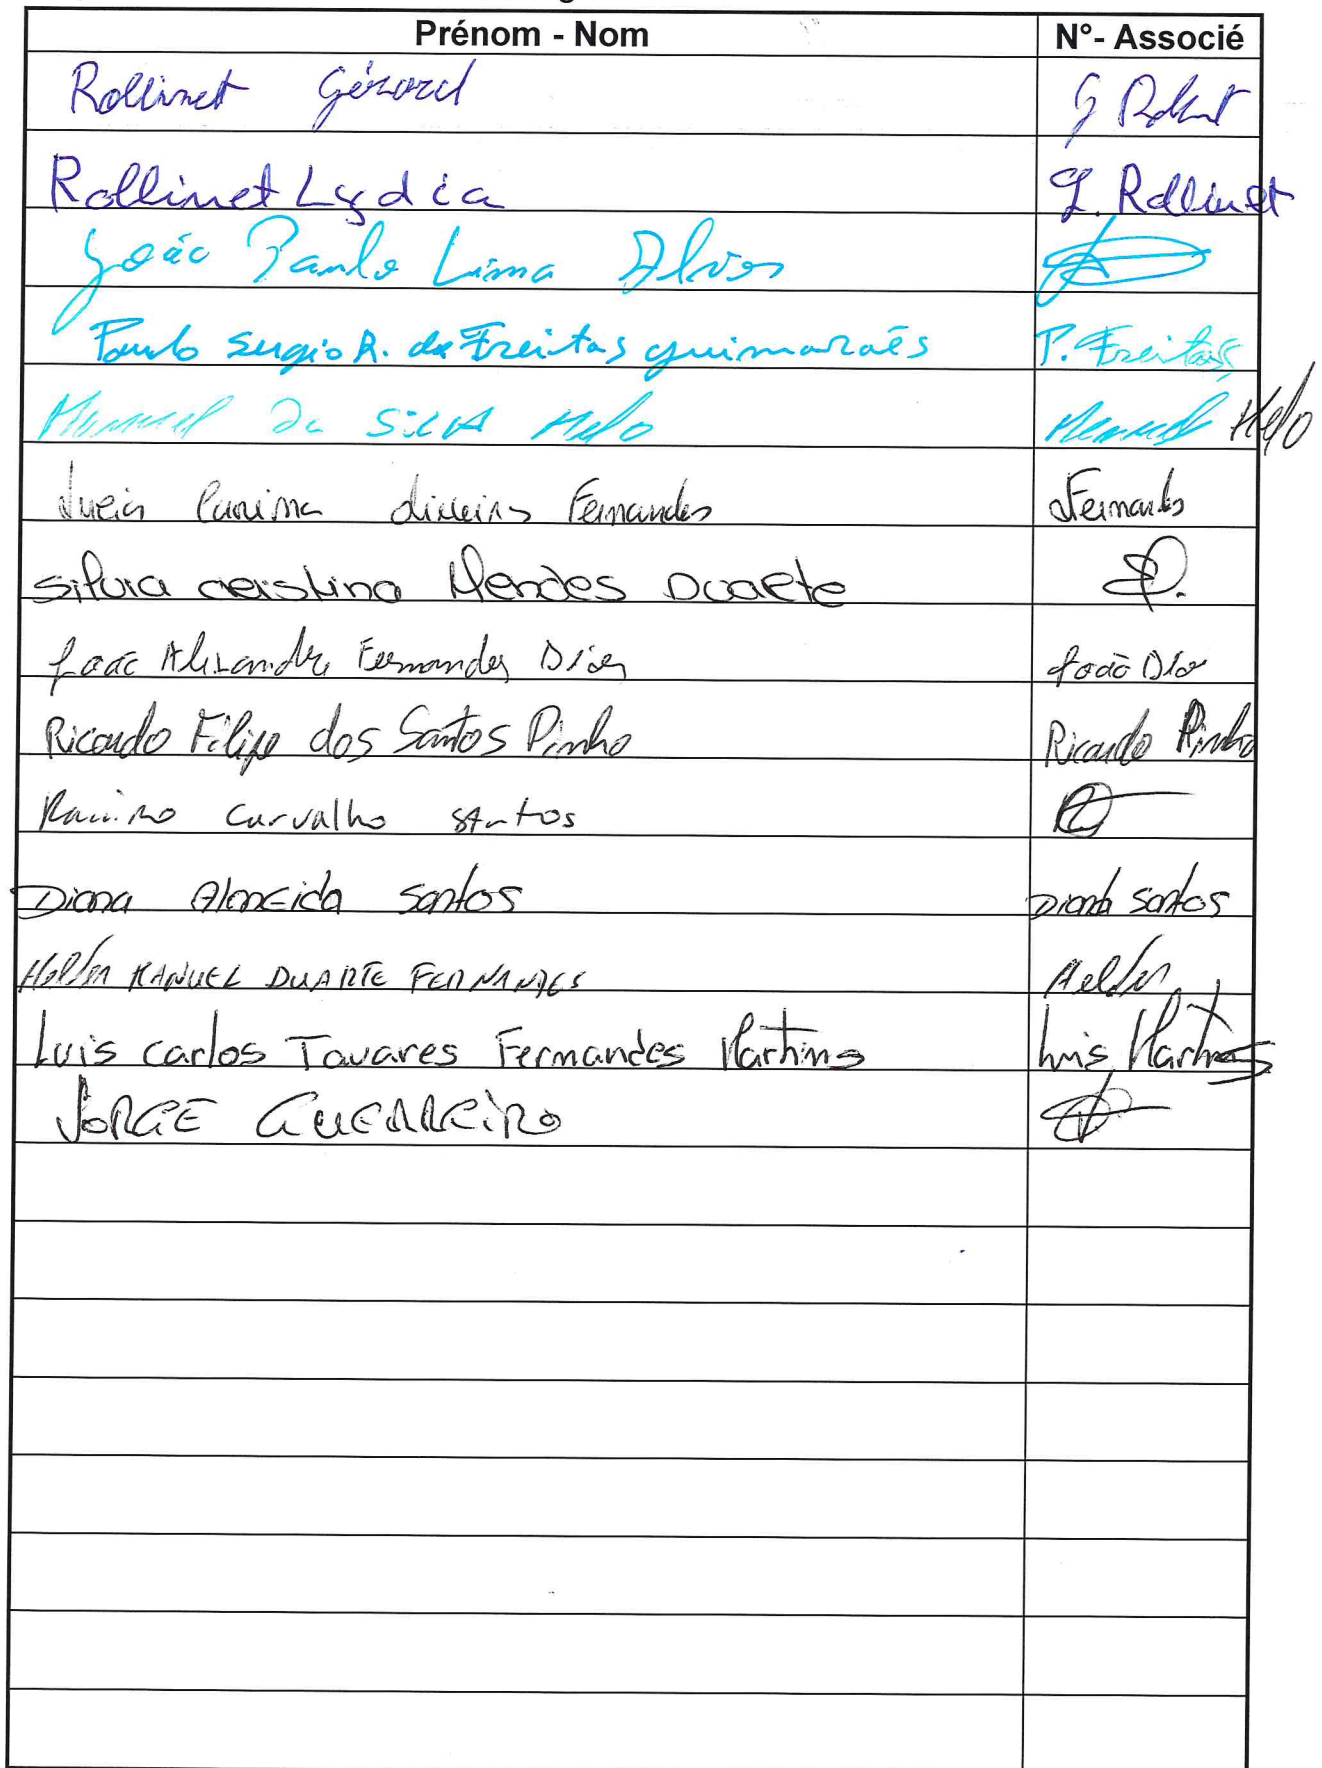 Prénom - Nom N°- Associé
Rollinet Gérard
Rollinet Lydia L. Rollinet
João Paulo Lima Alves
Paulo Sergio R. de Freitas guimarães P. Freitas
Manuel Da SilvA Melo Manuel Melo
Lucia Fernandes Fernandes
Silvia cristina Mendes Duarte
João Alexandre Fernandes Dias João Dias
Ricardo Filipe dos Santos Pinho Ricardo Pinho
Ramiro Carvalho SAntos
Diana Almeida Santos Diana Santos
Helder MANUEL DUARTE FERNANDES Helder
Luis carlos Tavares Fernandes Martins Luis Martins
JORGE GUERREiRO